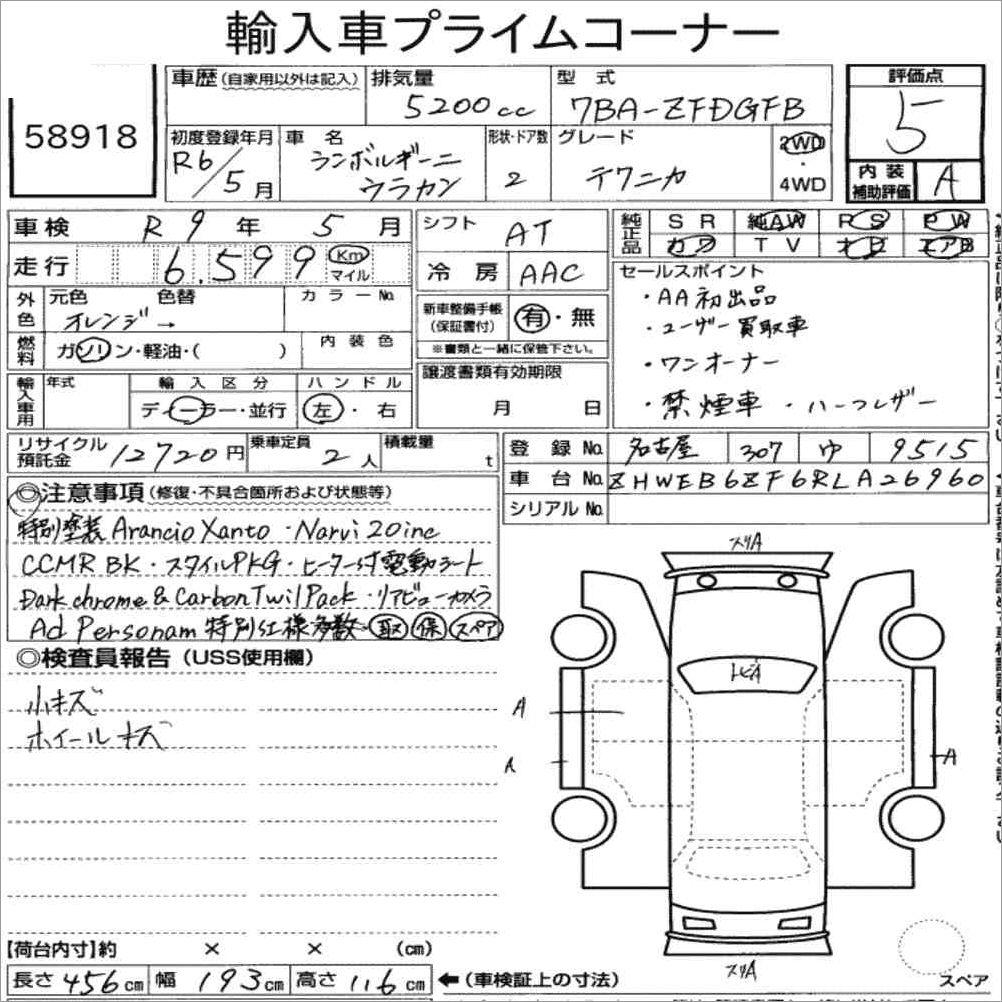 輸入車プライムコーナー
58918
車歴 (自家用以外は記入)
排気量
5200cc
型式
7BA-ZFDGFB
評価点
5
初度登録年月
R6/5月
車名
ランボルギーニ
ウラカン
形状・ドア数
2
グレード
テクニカ
2WD
・
4WD
内装
補助評価
A
車検 R9年 5月
シフト
AT
純正品
SR 純AW PS PW
カワ TV ナビ エアB
走行 6.599 Km
マイル
冷房 AAC
セールスポイント
・AA初出品
・ユーザー買取車
・ワンオーナー
・禁煙車 ・ハーフレザー
外色
元色 色替 カラーNo
オレンジ→
新車整備手帳
(保証書付)
有・無
※書類と一緒に保管下さい。
燃料
ガソリン・軽油・( )
内装色
譲渡書類有効期限
月 日
輸入車用
年式
輸入区分
ハンドル
ディーラー・並行
左・右
リサイクル
預託金
12720円
乗車定員
2人
積載量
t
登録No. 名古屋 307 ゆ 9515
車台No. ZHWEB6ZF6RLA26960
シリアルNo.
◎注意事項 (修復・不具合箇所および状態等)
特別塗装 Arancio Xanto ・Narvi 20inc
CCMR BK ・スタイルPKG・ヒーター付電動シート
Dark chrome & Carbon Twil Pack ・リアビューカメラ
Ad Personam 特別仕様多数 取 保 スペア
◎検査員報告 (USS使用欄)
小キズ
ホイールキズ
スリA
トビA
A
A
A
スリA
【荷台内寸】約 × × (cm)
長さ 456cm 幅 193cm 高さ 116cm
←(車検証上の寸法)
スペア